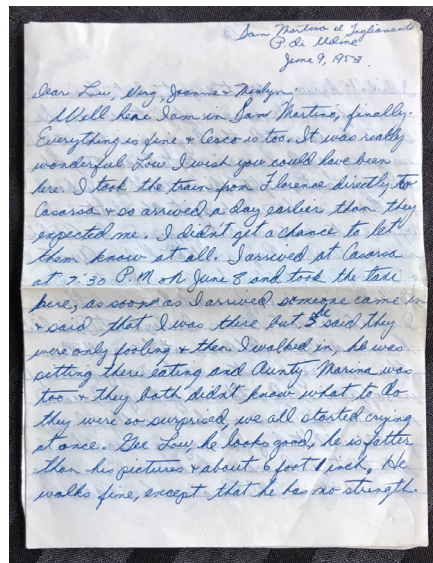 San Martino al Tagliamento
P. di Udine
June 9, 1953
Dear Lou, Gerg, Joanne & Marilyn,
Well here I am in San Martino, finally.
Everything is fine & Cesco is too. It was really
wonderful Lou, I wish you could have been
here. I took the train from Florence directly to
Casarsa & so arrived a day earlier than they
expected me. I didn't get a chance to let
them know at all. I arrived at Casarsa
at 7:30 P.M on June 8 and took the taxi
here, as soon as I arrived someone came in
& said that I was there but he said they
were only fooling & then I walked in, he was
sitting there eating and Aunty Marina was
too & they both didn't know what to do
they were so surprised, we all started crying
at once. Gee Lou, he looks good, he is fatter
than his pictures & about 6 foot 1 inch. He
walks fine, except that he has no strength.